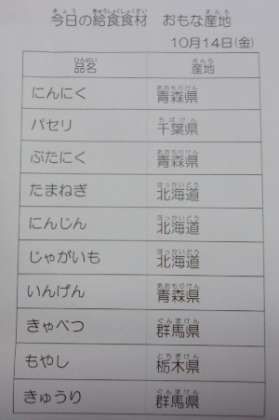 今日の給食食材 おもな産地
10月14日(金)
品名 産地
にんにく 青森県
パセリ 千葉県
ぶたにく 青森県
たまねぎ 北海道
にんじん 北海道
じゃがいも 北海道
いんげん 青森県
きゃべつ 群馬県
もやし 栃木県
きゅうり 群馬県